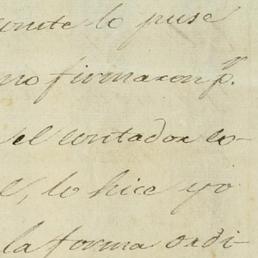 lo puse
no firmaron p.
el contador co-
lo hice yo
la forma ordi-